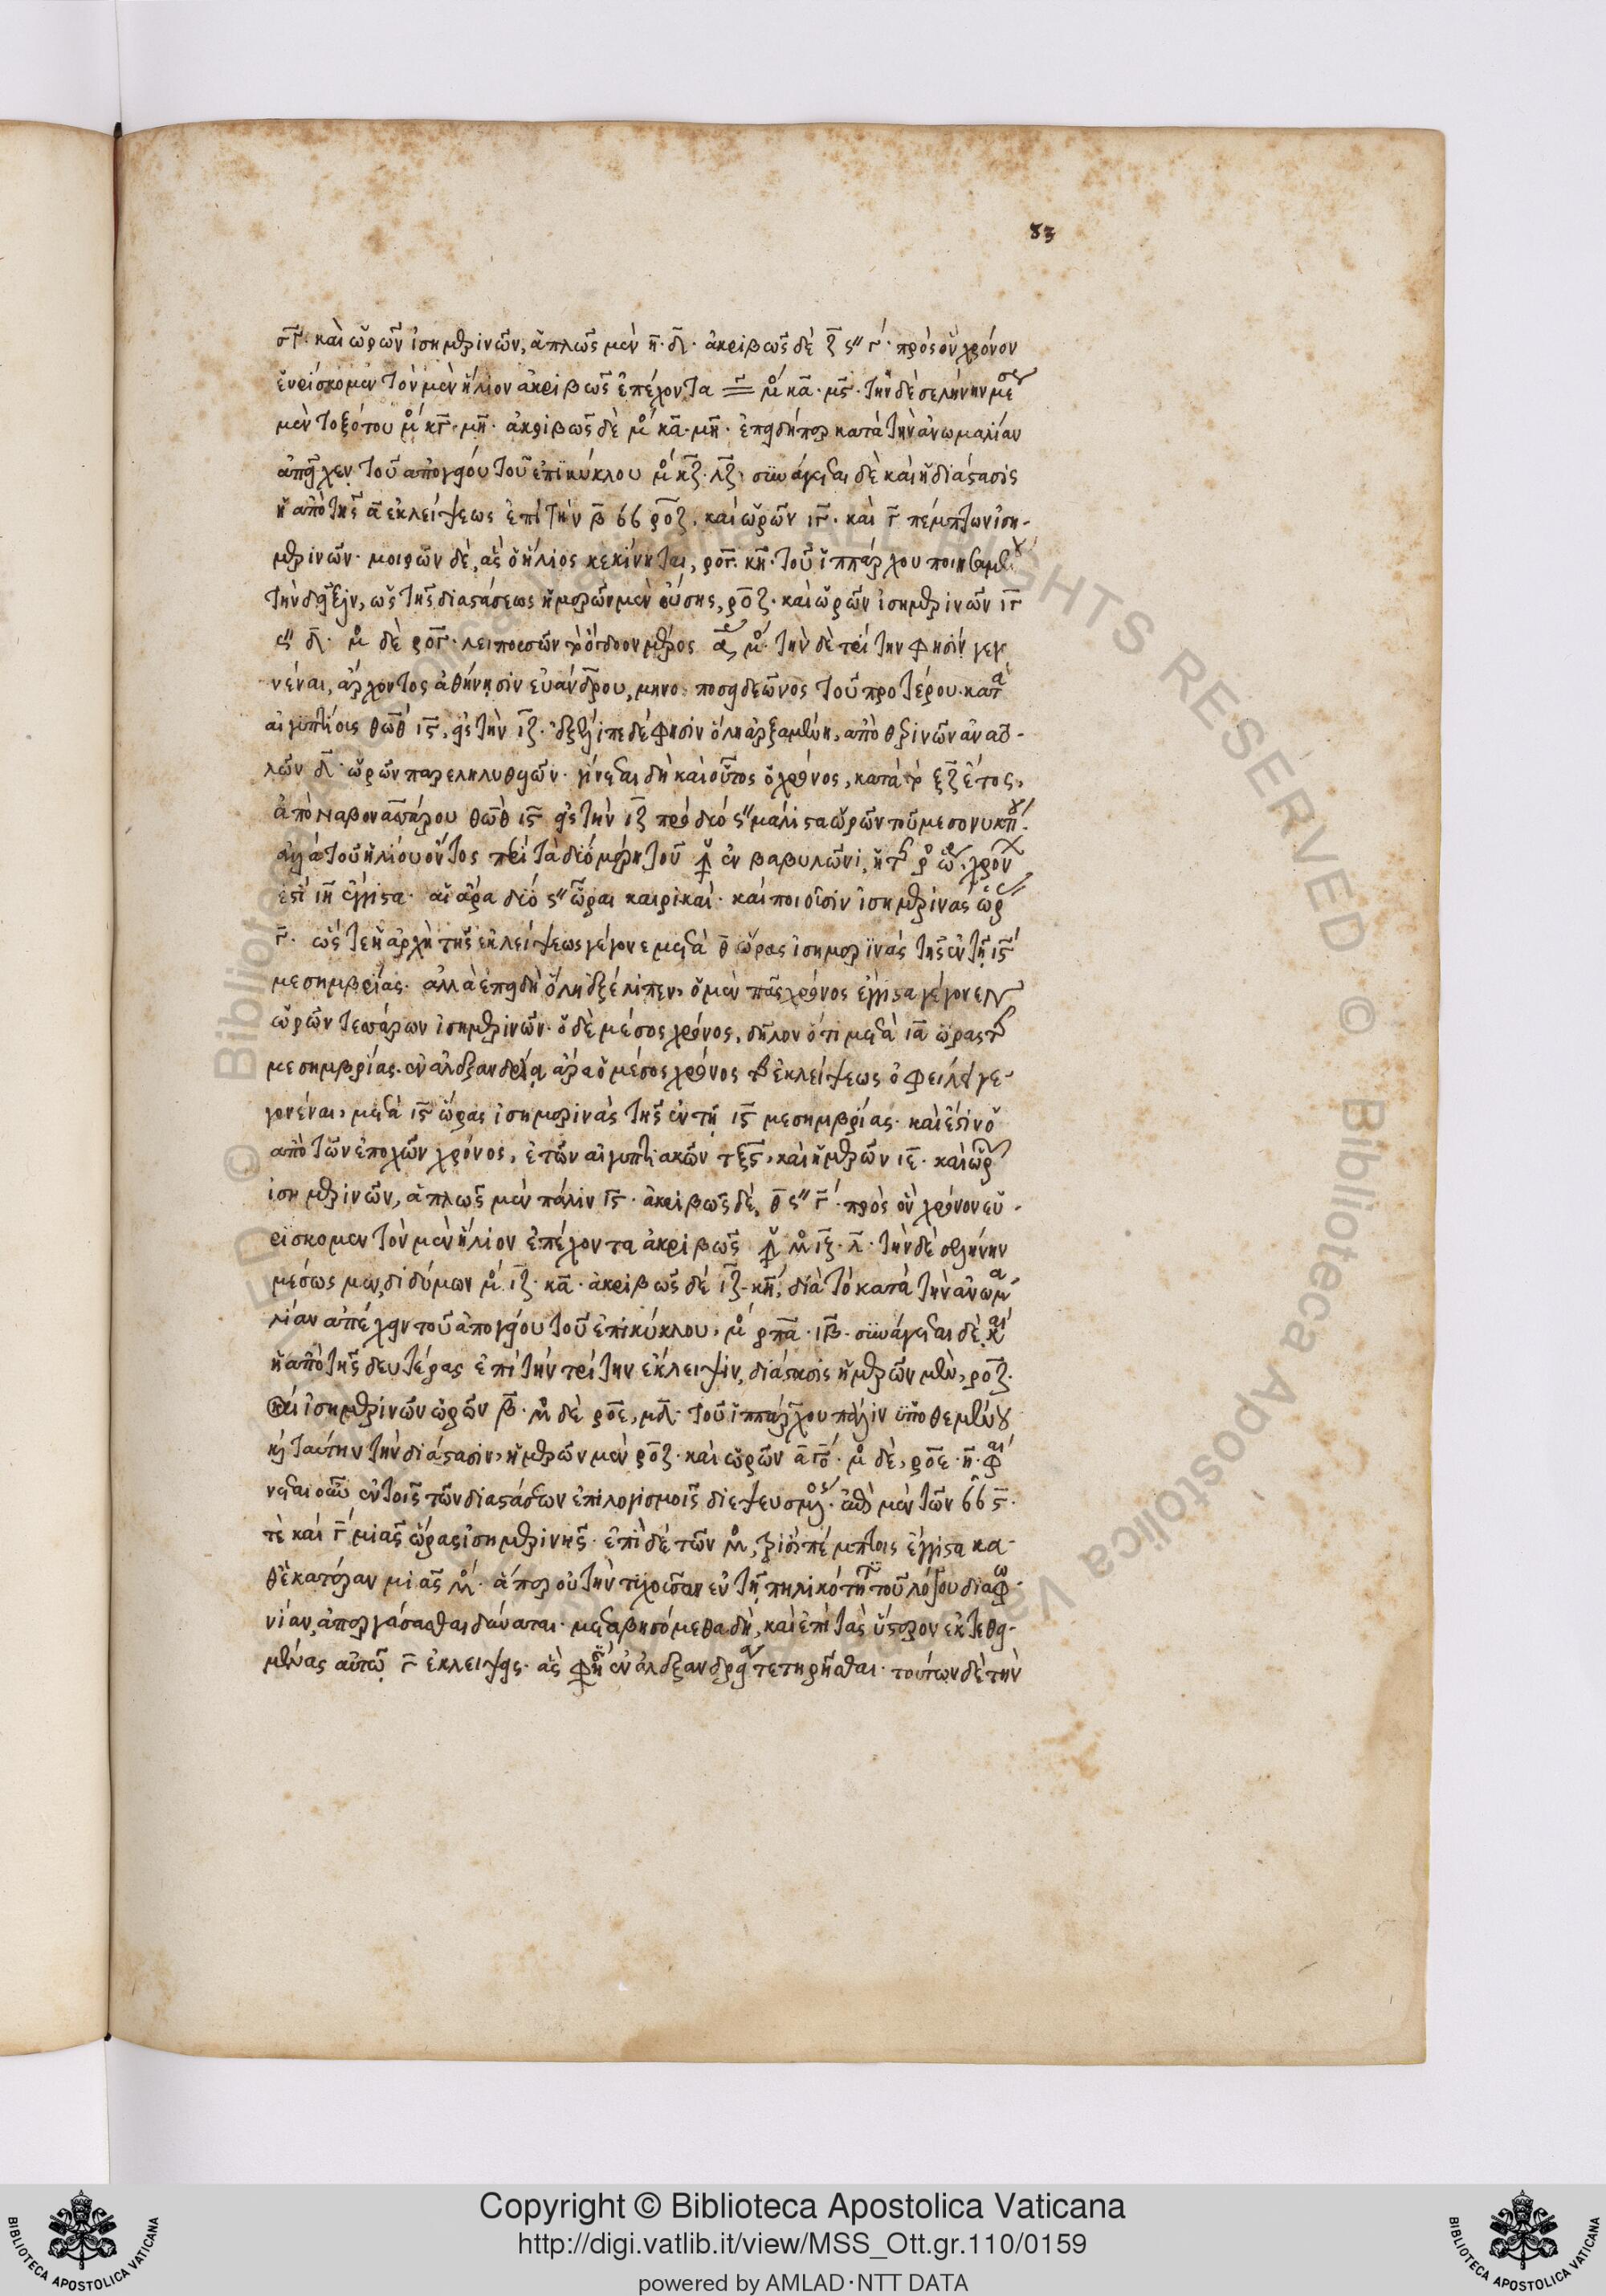 83
σ̅γ̅· καὶ ὡρῶν ἰσημερινῶν, ἁπλῶς μὲν η̅· δ̅· ἀκριβῶς δὲ ζ̅ ς″ γ´· πρὸς ὃν χρόνον
εὑρίσκομεν τὸν μὲν ἥλιον ἀκριβῶς ἐπέχοντα μ° κα̅· μς̅· τὴν δὲ σελήνην μέσως
μὲν τοξότου μ° κγ̅· μη̅· ἀκριβῶς δὲ μ° κα̅· μη̅· ἐπειδήπερ κατὰ τὴν ἀνωμαλίαν
ἀπεῖχεν τοῦ ἀπογείου τοῦ ἐπικύκλου μ° κζ̅· λζ̅· συνάγεται δὲ καὶ ἡ διάστασις
ἡ ἀπὸ τῆς α̅ ἐκλείψεως ἐπὶ τὴν β̅ ροζ̅. καὶ ὡρῶν ιγ̅· καὶ γ̅ πέμπτων ἰση-
μερινῶν· μοιρῶν δὲ, ἃς ὁ ἥλιος κεκίνηται, ρογ̅· κη̅· τοῦ ἱππάρχου ποιησαμένου
τὴν δεῖξιν, ὡς τῆς διαστάσεως ἡμερῶν μὲν οὔσης, ροζ̅· καὶ ὡρῶν ἰσημερινῶν ιγ̅
ς″ δ̅· μ° δὲ ρογ̅· λειπουσῶν ὄγδοον μέρος α̅ μ°· τὴν δὲ τρίτην φησὶν γεγο
νέναι, ἄρχοντος ἀθήνησιν εὐάνδρου, μηνὸς ποσειδεῶνος τοῦ προτέρου· κατὰ
αἰγυπτίους θωθ ις̅, εἰς τὴν ιζ̅· ἐξέλιπε δέ φησιν ὅλη ἀρξαμένη, ἀπὸ θερινῶν ἀνατο-
λῶν δ̅· ὡρῶν παρεληλυθυιῶν· γίνεται δὴ καὶ οὗτος ὁ χρόνος, κατὰ τὸ ξζ̅ ἔτος,
ἀπὸ Ναβονασσάρου θωθ ις̅ εἰς τὴν ιζ̅ πρὸ δύο ς″ μάλιστα ὡρῶν τοῦ μεσονυκτίου·
ἀλλὰ τοῦ ἡλίου ὄντος περὶ τὰ δύο μέρη τοῦ ἐν βαβυλῶνι, ἡ τῆς χρόνων
ἐστὶ ιη̅ ἔγγιστα· αἱ ἄρα δύο ς″ ὧραι καιρικαὶ· καὶ ποιοῦσιν ἰσημερινὰς ὥρας
γ̅· ὥστε ἡ ἀρχὴ τῆς ἐκλείψεως γέγονε μετὰ θ̅ ὥρας ἰσημερινὰς τῆς ἐν τῇ ις̅
μεσημβρίας· ἀλλὰ ἐπειδὴ ὅλη ἐξέλιπεν, ὁ μὲν πᾶς χρόνος ἔγγιστα γέγονεν
ὡρῶν τεσσάρων ἰσημερινῶν· ὁ δὲ μέσος χρόνος, δῆλον ὅτι μετὰ ια̅ ὥρας τῆς
μεσημβρίας· ἐν ἀλεξανδρείᾳ ἄρα ὁ μέσος χρόνος τῆς ἐκλείψεως ὀφείλει γε-
γονέναι, μετὰ ις̅ ὥρας ἰσημερινὰς τῆς ἐν τῇ ις̅ μεσημβρίας· καὶ ἔστιν ὁ
ἀπὸ τῶν ἐποχῶν χρόνος, ἐτῶν αἰγυπτιακῶν τξς̅, καὶ ἡμερῶν ιε̅· καὶ ὡρῶν
ἰσημερινῶν, ἁπλῶς μὲν πάλιν ις̅· ἀκριβῶς δὲ, θ̅ ς″ γ̅´· πρὸς ὃν χρόνον εὑ-
ρίσκομεν τὸν μὲν ἥλιον ἐπέχοντα ἀκριβῶς μ° ιζ̅· λ̅· τὴν δὲ σελήνην
μέσως μὲν, διδύμων μ° ιζ̅· κα̅· ἀκριβῶς δὲ ιζ̅· κη̅, διὰ τὸ κατὰ τὴν ἀνωμα
λίαν ἀπέχειν τοῦ ἀπογείου τοῦ ἐπικύκλου, μ° ρπα̅· ιβ̅· συνάγεται δὲ καὶ
ἡ ἀπὸ τῆς δευτέρας ἐπὶ τὴν τρίτην ἔκλειψιν, διάστασις ἡμερῶν μὲν, ροζ̅.
καὶ ἰσημερινῶν ὡρῶν β̅· μ° δὲ ροε̅, μδ̅· τοῦ ἱππάρχου πάλιν ὑποθεμένου
καὶ ταύτην τὴν διάστασιν, ἡμερῶν μὲν ροζ̅· καὶ ὡρῶν α̅ γο̅· μ° δὲ, ροε̅· η̅· φαί
νεται οὖν ἐν τοῖς τῶν διαστάσεων ἐπιλογισμοῖς διεψευσμένος· ἐπὶ μὲν τῶν ς̅·
τὲ καὶ γ̅´ μιᾶς ὥρας ἰσημερινῆς· ἐπὶ δὲ τῶν μ°, τρισὶ πέμπτοις ἔγγιστα κα-
θ' ἑκατέραν μιᾶς μ°· ἅπερ οὐ τὴν τυχοῦσαν ἐν τῇ πηλικότητι τοῦ λόγου διαφω-
νίαν, ἀπεργάσασθαι δύναται· μεταβησόμεθα δὴ, καὶ ἐπὶ τὰς ὕστερον ἐκτεθει-
μένας αὐτῷ γ̅ ἐκλείψεις· ἃς φησὶν ἐν ἀλεξανδρείᾳ τετηρῆσθαι· τούτων δὲ τὴν
© Biblioteca Apostolica Vaticana
ALL RIGHTS RESERVED
Copyright © Biblioteca Apostolica Vaticana
http://digi.vatlib.it/view/MSS_Ott.gr.110/0159
powered by AMLAD·NTT DATA
BIBLIOTECA APOSTOLICA VATICANA
BIBLIOTECA APOSTOLICA VATICANA